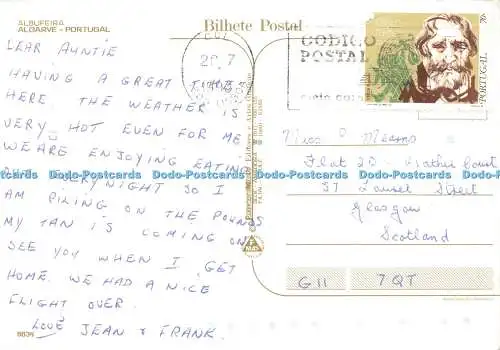 ALBUFEIRA
ALGARVE - PORTUGAL
Bilhete Postal
DEAR AUNTIE
HAVING A GREAT TIME
HERE. THE WEATHER IS
VERY HOT EVEN FOR ME
WE ARE ENJOYING EATING
OUT EVERY NIGHT SO I
AM PILING ON THE POUNDS
MY TAN IS COMING ON
SEE YOU WHEN I GET
HOME. WE HAD A NICE
FLIGHT OVER.
LOVE JEAN & FRANK.
CODIGO
POSTAL
PORTUGAL
Miss P Mearns
Flat 2D
Street
Glasgow
Scotland
G11 7QT
Dodo-Postcards Dodo-Postcards Dodo-Postcards